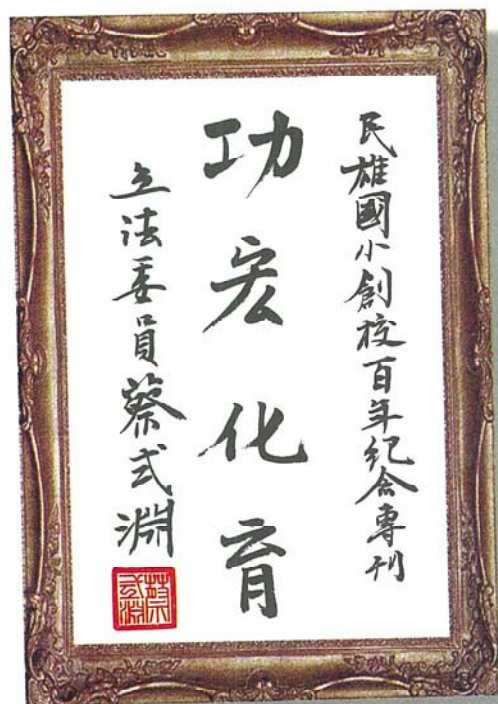 民雄國小創校百年紀念專刊
功宏化育
立法委員蔡式淵
蔡式淵